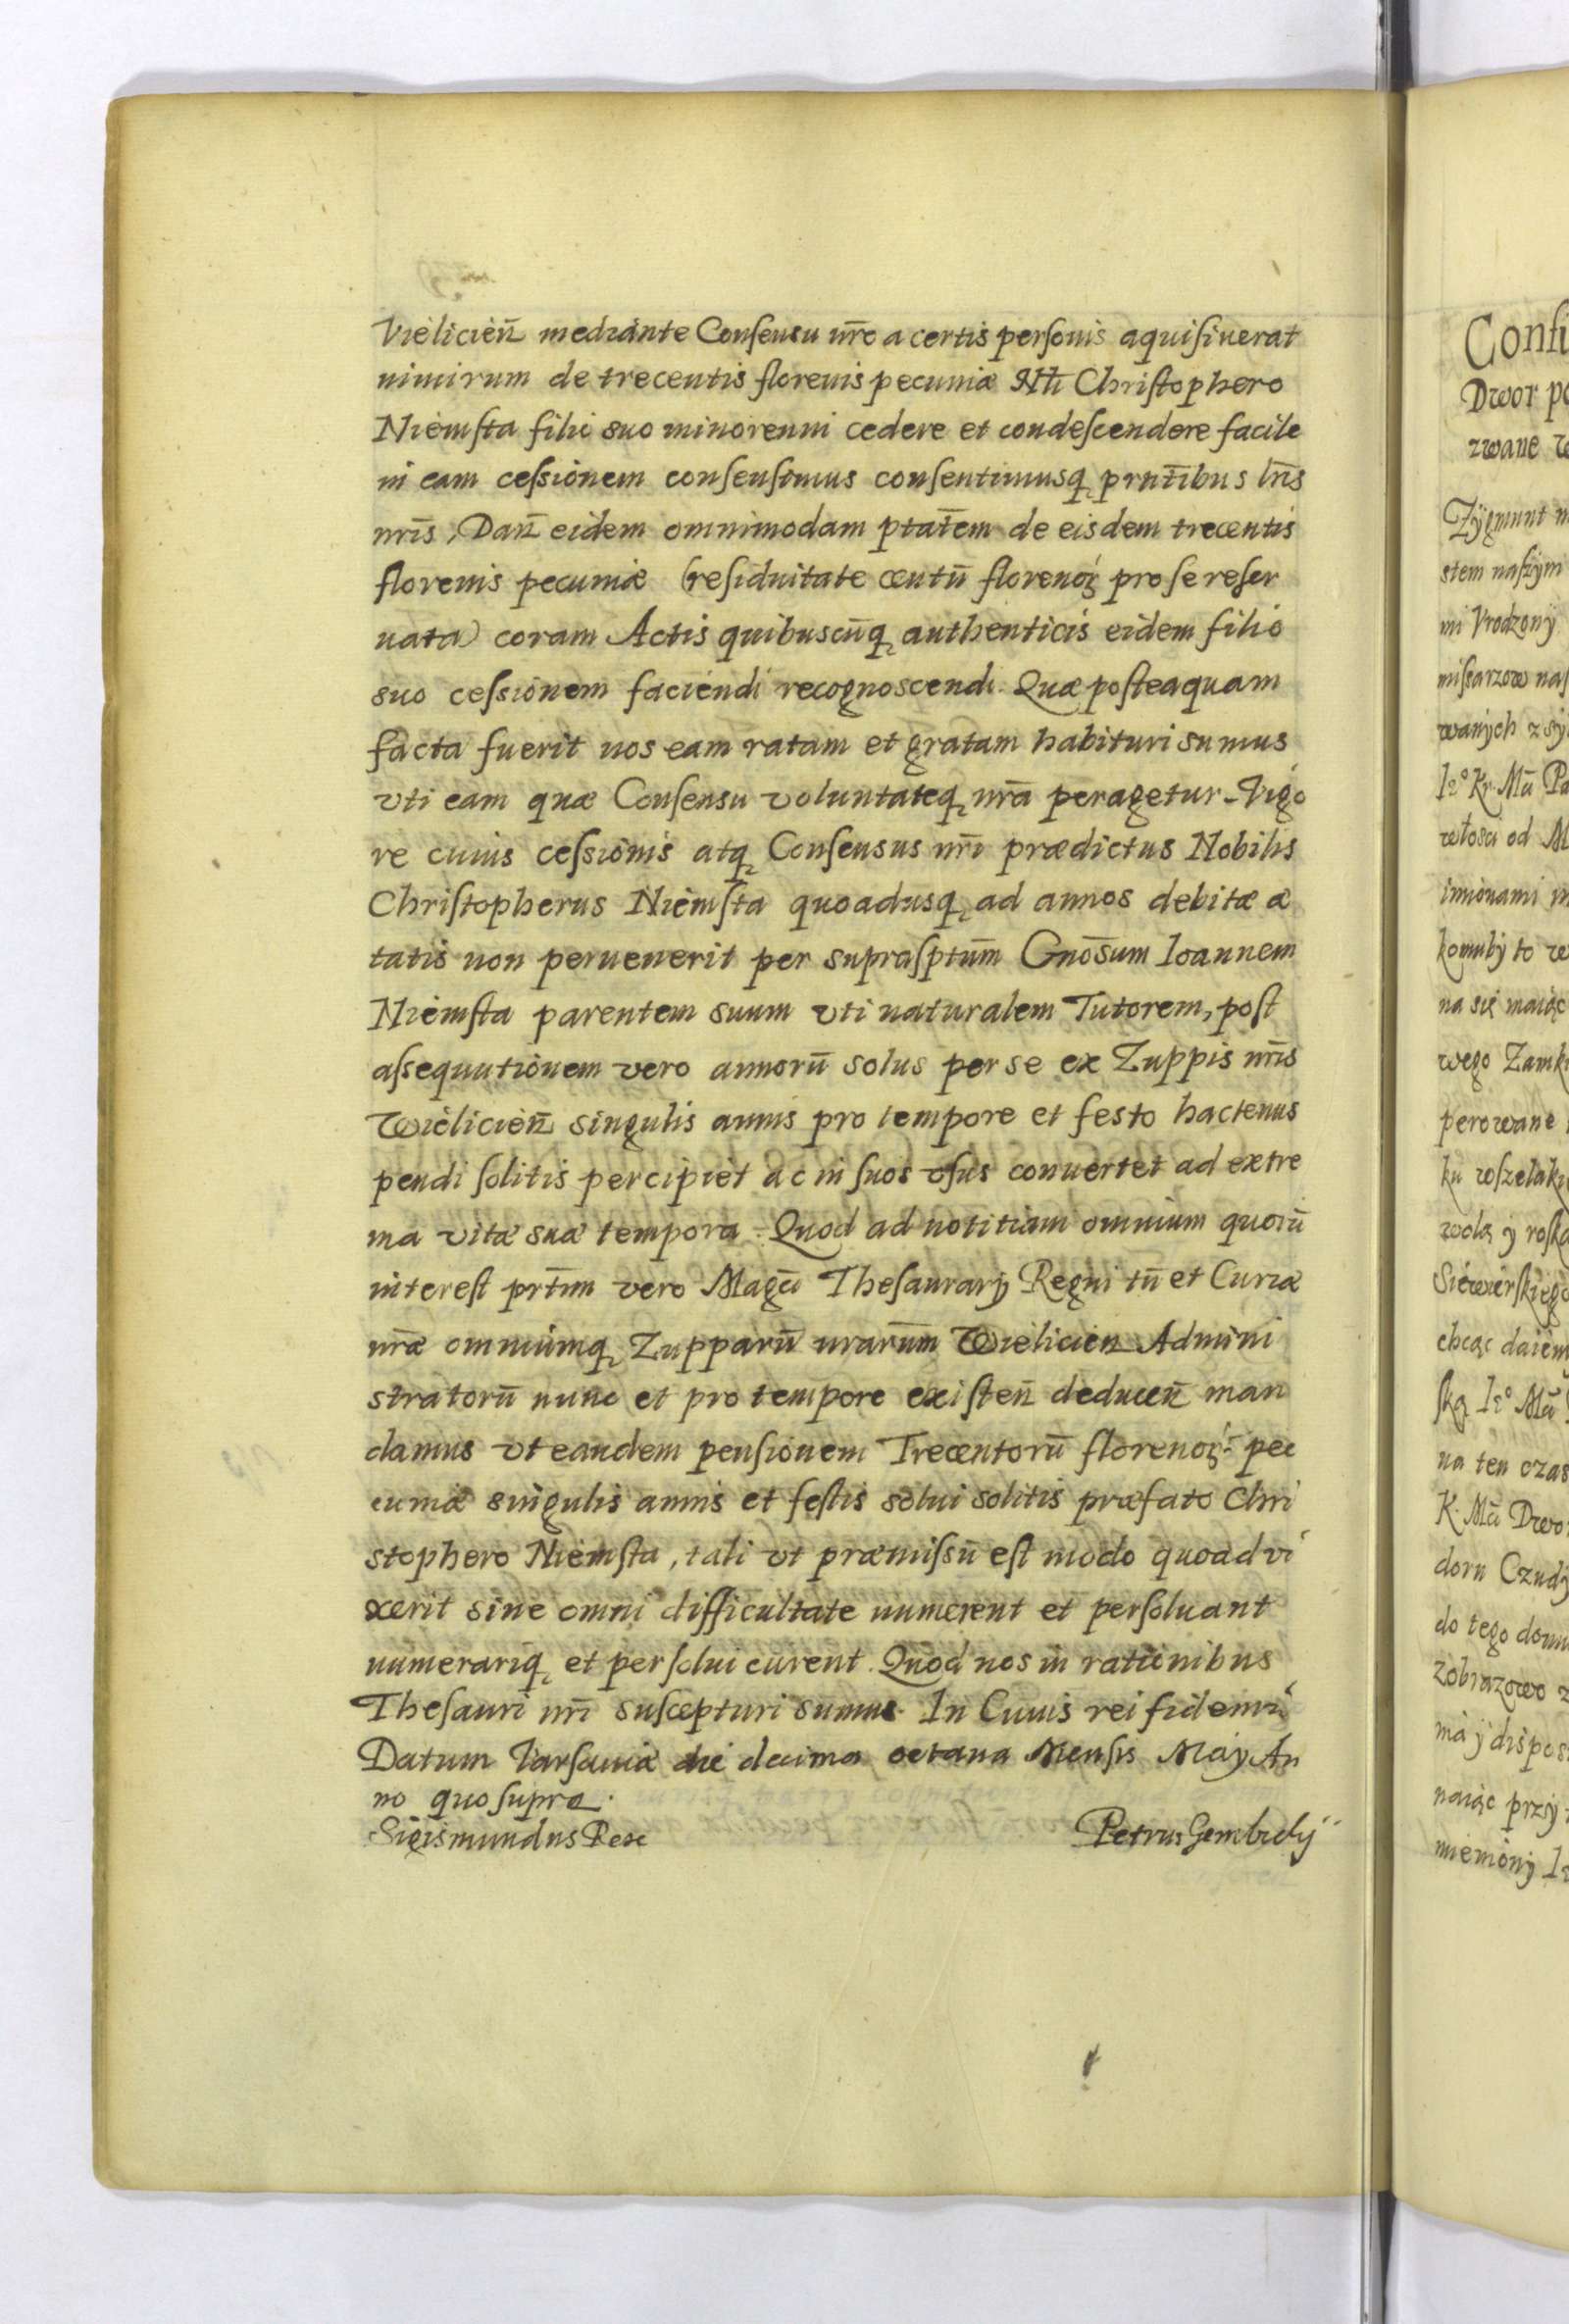 Vielicień mediante Consensu nr̄o a certis personis aquisiuerat
nimirum de trecentis florenis pecuniæ Nli Christophero
Niemsta filio suo minorenni cedere et condescendere facile
in eam cessionem consensimus consentimusq, prn̄tibus lr̄is
nr̄is, Dan̄ eidem omnimodam ptat̄em de eisdem trecentis
florenis pecuniæ (residuitate centū florenoꝝ pro se reser
uata) coram Actis quibuscūq, authenticis eidem filio
suo cessionem faciendi recognoscendi. Quæ posteaquam
facta fuerit nos eam ratam et gratam habituri sumus
vti eam quæ Consensu voluntateq, nr̄a peragetur. Vigo
re cuius cessionis atq, Consensus nr̄i prædictus Nobilis
Christopherus Niemsta quoadusq, ad annos debitæ æ
tatis non peruenerit per suprasptum̄ Gnōsum Ioannem
Niemsta parentem suum vti naturalem Tutorem, post
assequutionem vero annorū solus per se ex Zuppis nr̄is
Wielicień singulis annis pro tempore et festo hactenus
pendi solitis percipiet ac in suos vsus conuertet ad extre
ma vitæ suæ tempora. Quod ad notitiam omnium quorū
interest prt̄im vero Magci Thesaurarÿ Regni tū et Curiæ
nr̄æ omniumq, Zupparū nrarum̄ Wielicien Admini
stratorū nunc et pro tempore existen̄ deducen̄ man
damus vt eandem pensionem Trecentorū florenoꝝ pec
cuniæ singulis annis et festis solui solitis præfato Chri
stophero Niemsta, tali vt præmissū est modo quoad vi
xerit sine omni difficultate numerent et persoluant
numerariq, et persolui curent. Quod nos in rationibus
Thesauri nr̄i suscepturi sumus. In Cuius rei fidem
Datum Varsauiæ die decima octaua Mensis Maÿ An
no quo supra.
Sigismundus Rex Petrus Gembicky
Consi
Dwor po
zwane
Zÿgmunt
stem naszÿmi
mi Vrodzonÿ
missarzow nas
wanÿch z sÿ
Ie° Kr. Mci Pa
włosci od M
imionami
komubÿ to
na się maiąc
wego Zamk
perowane
ku wszelak
wolą ÿ roska
Siewierskiego
chcąc daiem
ską Ie° Mci
na ten czas
K. Mci Dwo
doru Czudÿ
do tego domu
zobrazowo z
ma ÿ dispos
naiąc przÿ
mienionÿ